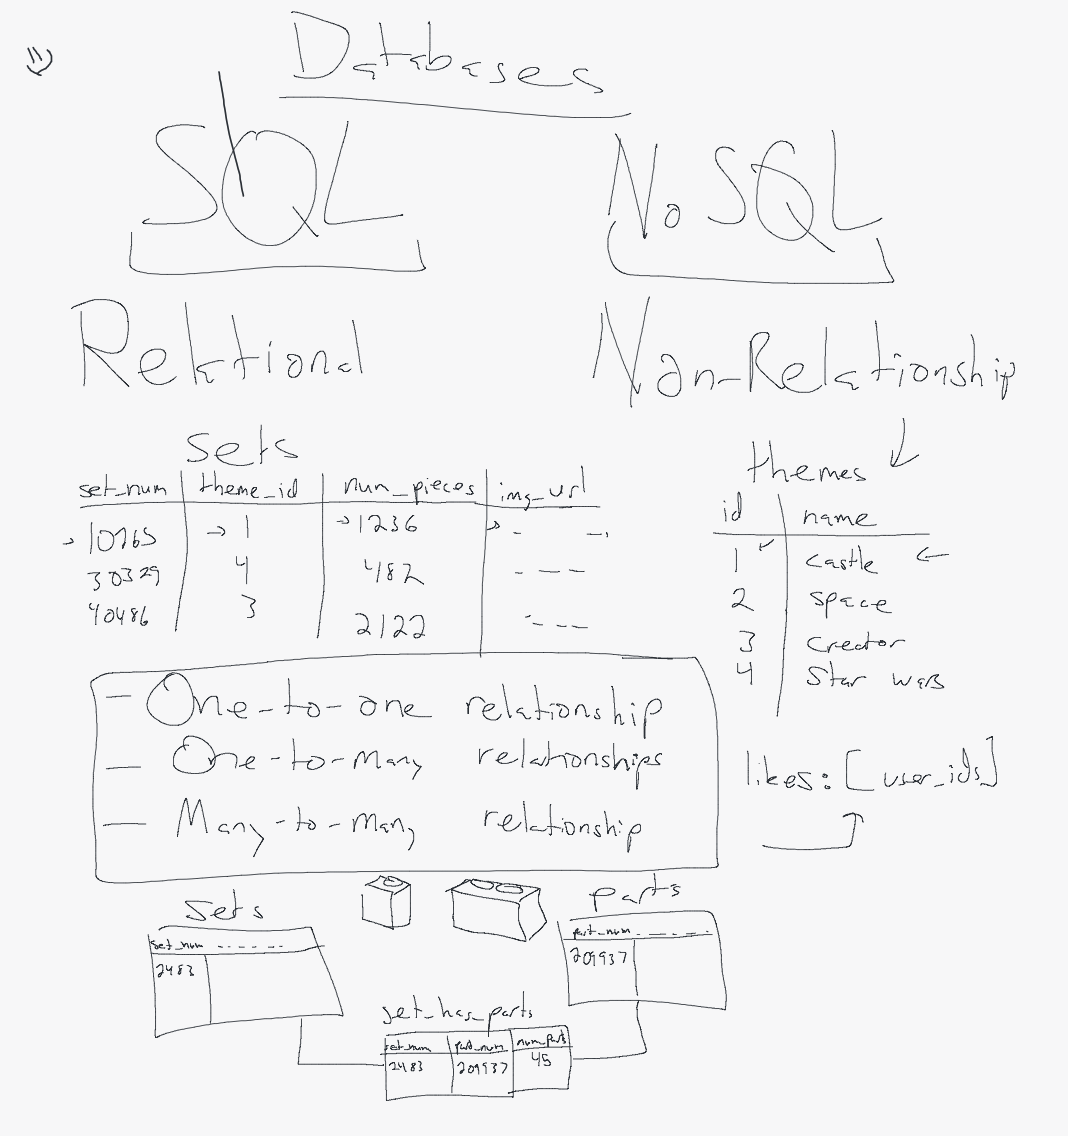 Databases
SQL
No SQL
Relational
Non-Relationship
sets
set_num theme_id num_pieces img_url
10765 1 1236
30329 4 482
40486 3 2122
themes
id name
1 castle
2 space
3 creator
4 Star wars
- One-to-one relationship
- One-to-many relationships
- Many-to-many relationship
likes: [user_ids]
Sets
set_num
2483
parts
part_num
209937
set_has_parts
set_num part_num num_parts
2483 209937 45